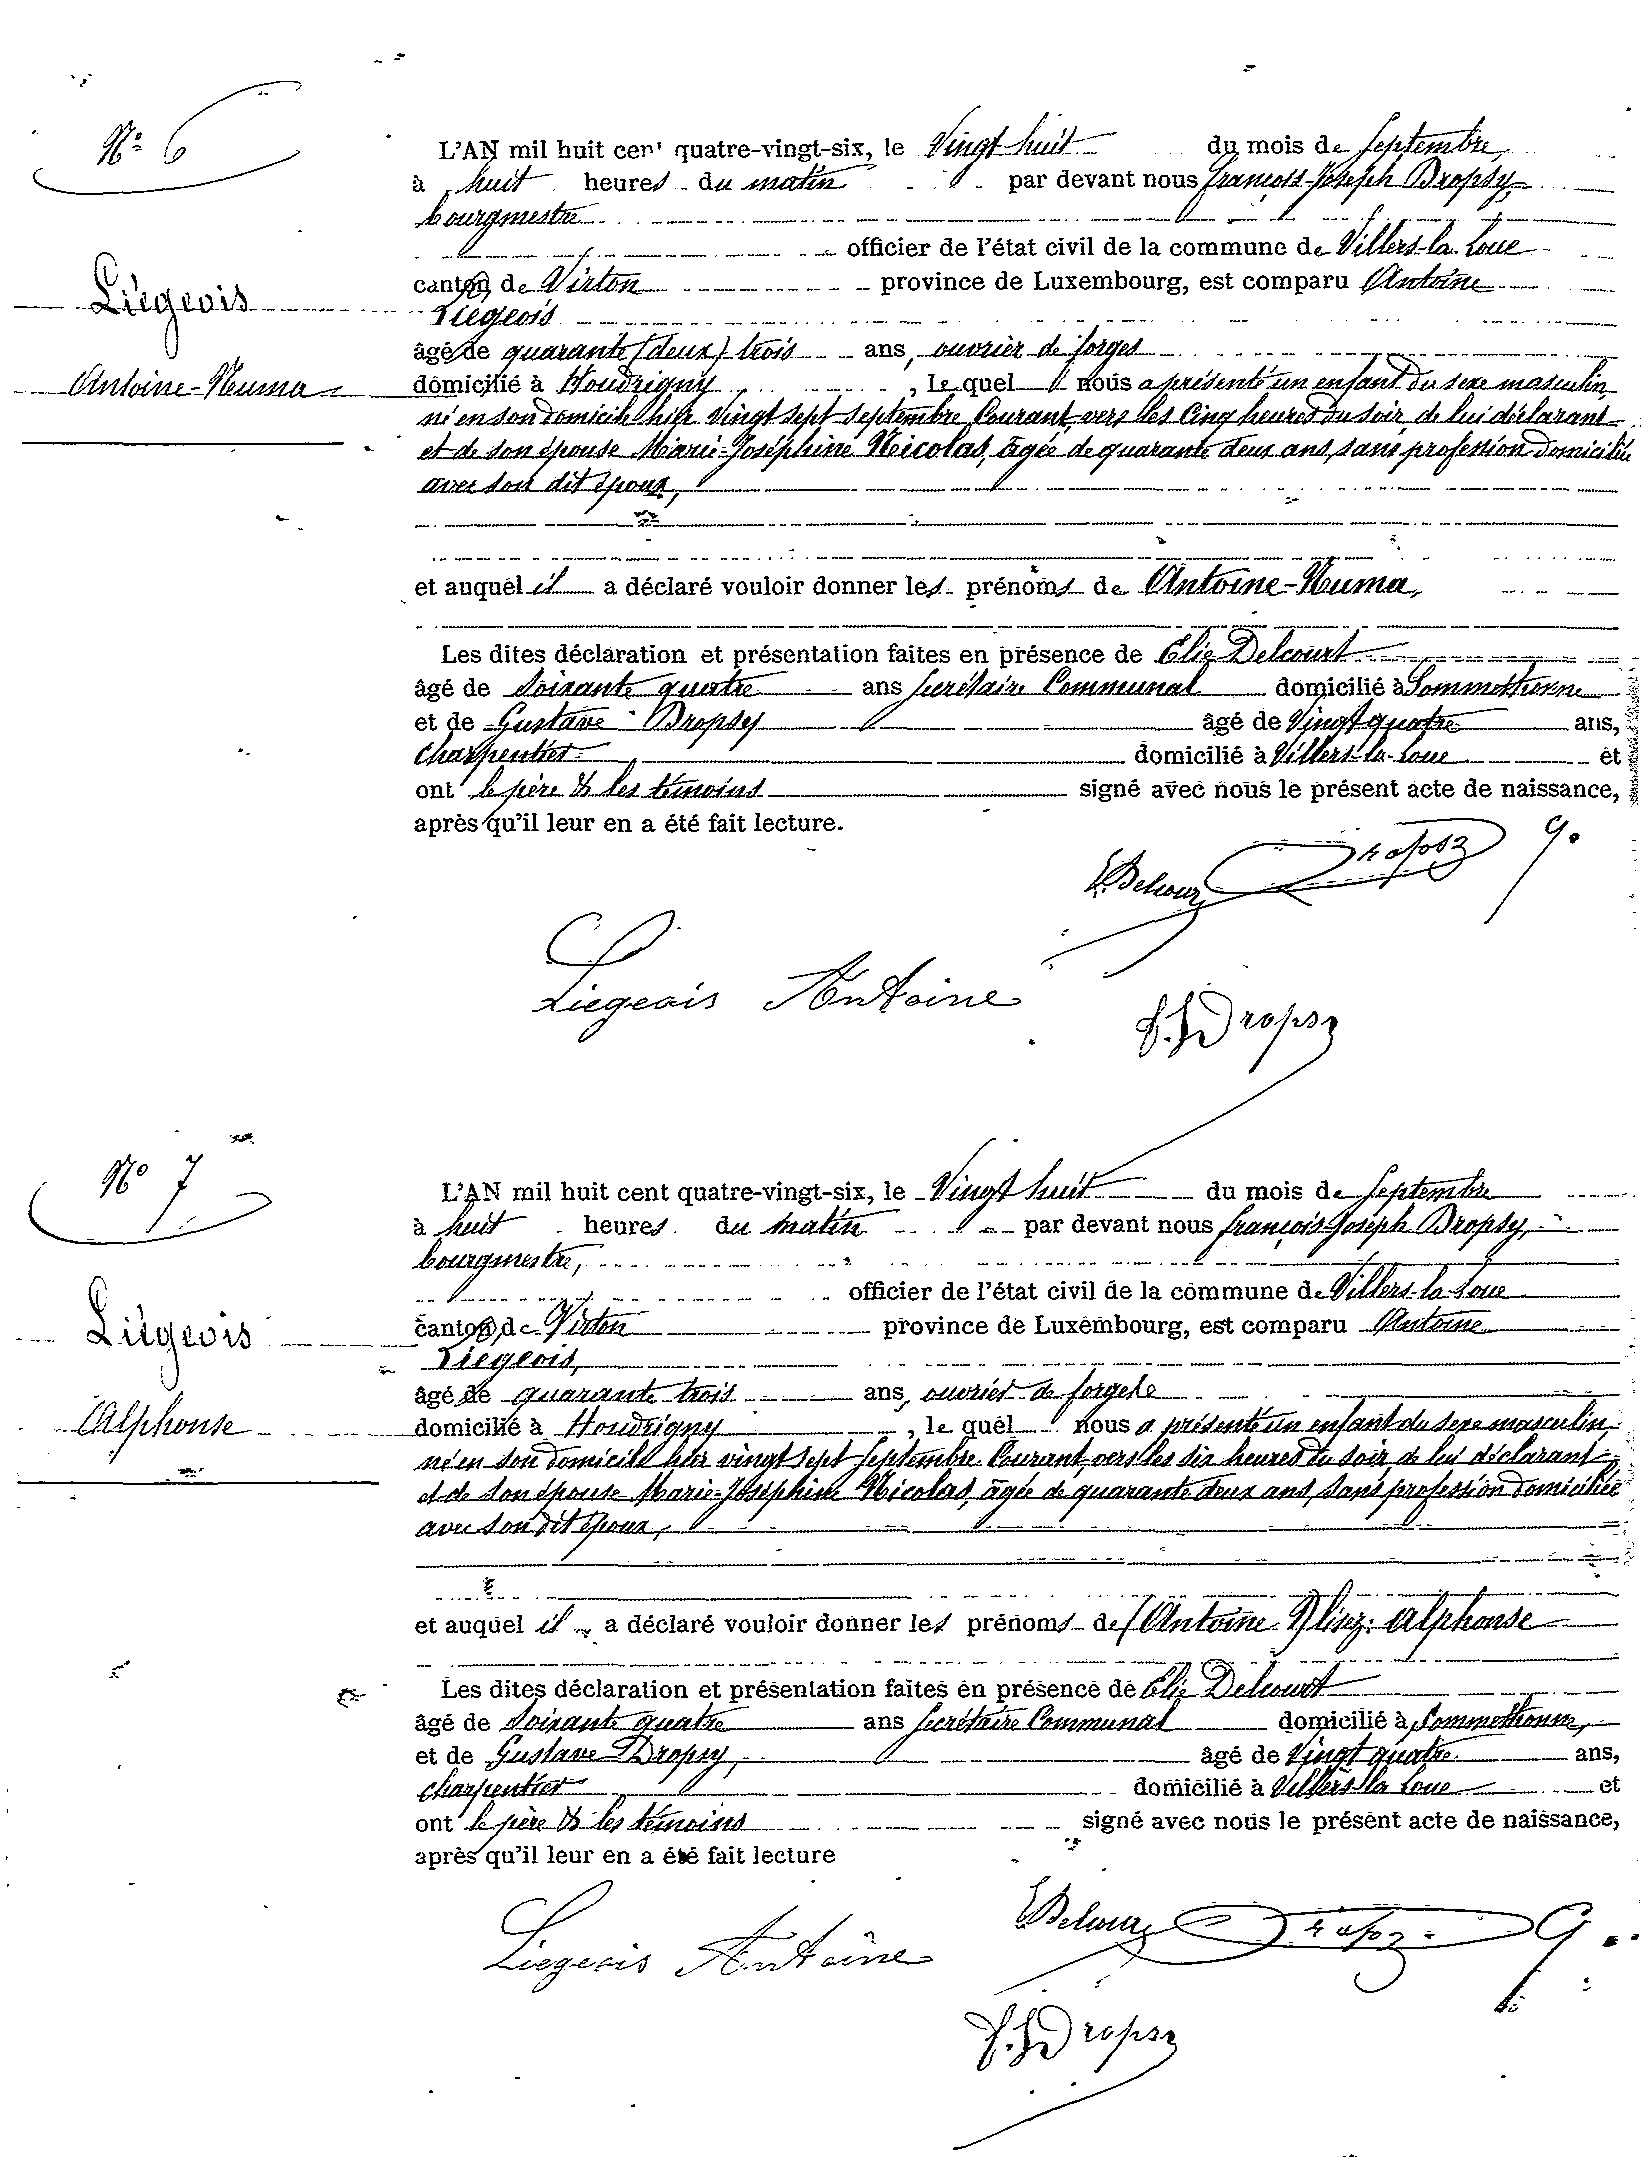 Nº 6
Liégeois
Antoine-Neuma
L'AN mil huit cent quatre-vingt-six, le Vingt huit du mois de Septembre,
à huit heures du matin par devant nous françois-Joseph Dropsy,
bourgmestre
officier de l'état civil de la commune de Villers-la-Loue
canton de Virton province de Luxembourg, est comparu Antoine
Liégeois
âgé de quarante (deux) trois ans, ouvrier de forges
domicilié à Houdrigny, le quel nous a présenté un enfant du sexe masculin,
né en son domicile hier vingt sept septembre Courant, vers les Cinq heures du soir, de lui déclarant
et de son épouse Marie-Joséphine Nicolas, âgée de quarante deux ans, sans profession domiciliée
avec son dit époux,
et auquel il a déclaré vouloir donner les prénoms de Antoine-Neuma,
Les dites déclaration et présentation faites en présence de Elie Delcourt
âgé de Soixante quatre ans Secrétaire Communal domicilié à Sommethonne
et de Gustave Dropsy âgé de Vingt quatre ans,
charpentier domicilié à Villers-la-Loue et
ont le père & les témoins signé avec nous le présent acte de naissance,
après qu'il leur en a été fait lecture.
E. Delcour Dropsy G.
Liegeois Antoine
F.J Dropsy
Nº 7
Liégeois
Alphonse
L'AN mil huit cent quatre-vingt-six, le Vingt huit du mois de Septembre
à huit heures du matin par devant nous françois-Joseph Dropsy,
bourgmestre,
officier de l'état civil de la commune de Villers-la-Loue
canton de Virton province de Luxembourg, est comparu Antoine
Liégeois,
âgé de quarante trois ans, ouvrier de forges
domicilié à Houdrigny, le quel nous a présenté un enfant du sexe masculin,
né en son domicile hier vingt sept Septembre Courant, vers les six heures du soir, de lui déclarant
et de son épouse Marie-Joséphine Nicolas, âgée de quarante deux ans, sans profession domiciliée
avec son dit époux,
et auquel il a déclaré vouloir donner les prénoms de (Antoine Alphonse
Les dites déclaration et présentation faites en présence de Elie Delcourt
âgé de Soixante quatre ans Secrétaire Communal domicilié à Sommethonne,
et de Gustave Dropsy, âgé de Vingt quatre ans,
charpentier domicilié à Villers la Loue et
ont le père & les témoins signé avec nous le présent acte de naissance,
après qu'il leur en a été fait lecture
E. Delcour Dropsy G.
Liegeois Antoine
F.J Dropsy